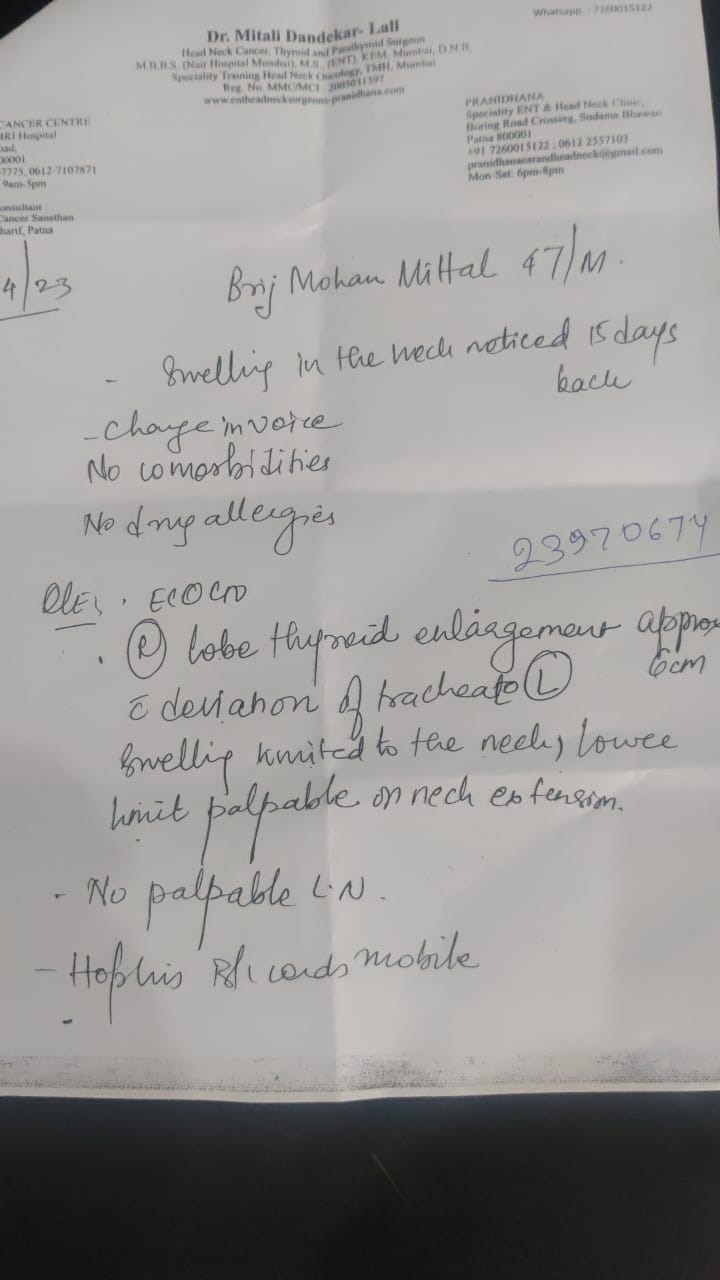 Whatsapp : 7260015122
Dr. Mitali Dandekar- Lall
Head Neck Cancer, Thyroid and Parathyroid Surgeon
M.B.B.S. (Nair Hospital Mumbai), M.S. (ENT), KEM, Mumbai, D.N.B.
Speciality Training Head Neck Oncology, TMH, Mumbai
Reg. No. MMC/MCI
www.entheadnecksurgeons-pranidhana.com
CANCER CENTRE
Hospital
oad,
00001
7775, 0612-7107871
9am-5pm
onsultant :
Cancer Sansthan
harif, Patna
PRANIDHANA
Speciality ENT & Head Neck Clinic,
Boring Road Crossing, Sudama Bhawan
Patna 800001
+91 7260015122 ; 0612 2557103
@gmail.com
Mon-Sat: 6pm-8pm
4/23
Brij Mohan Mittal 47/M.
- Swelling in the neck noticed 15 days
back
- Change in voice
No comorbidities
No drug allergies
23970674
O/E,
. (R) lobe thyroid enlargement approx
6cm
c̄ deviation of trachea to (L)
Swelling limited to the neck, lower
limit palpable on neck extension.
- No palpable L.N.
- Hopkins cords mobile
-